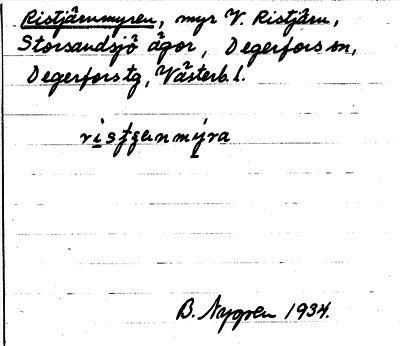 Ristjärnmyren, myr V. Ristjärn,
Storsandsjö ägor, Degerfors sn,
Degerfors tg, Västerb. l.
B. Nygren 1934.